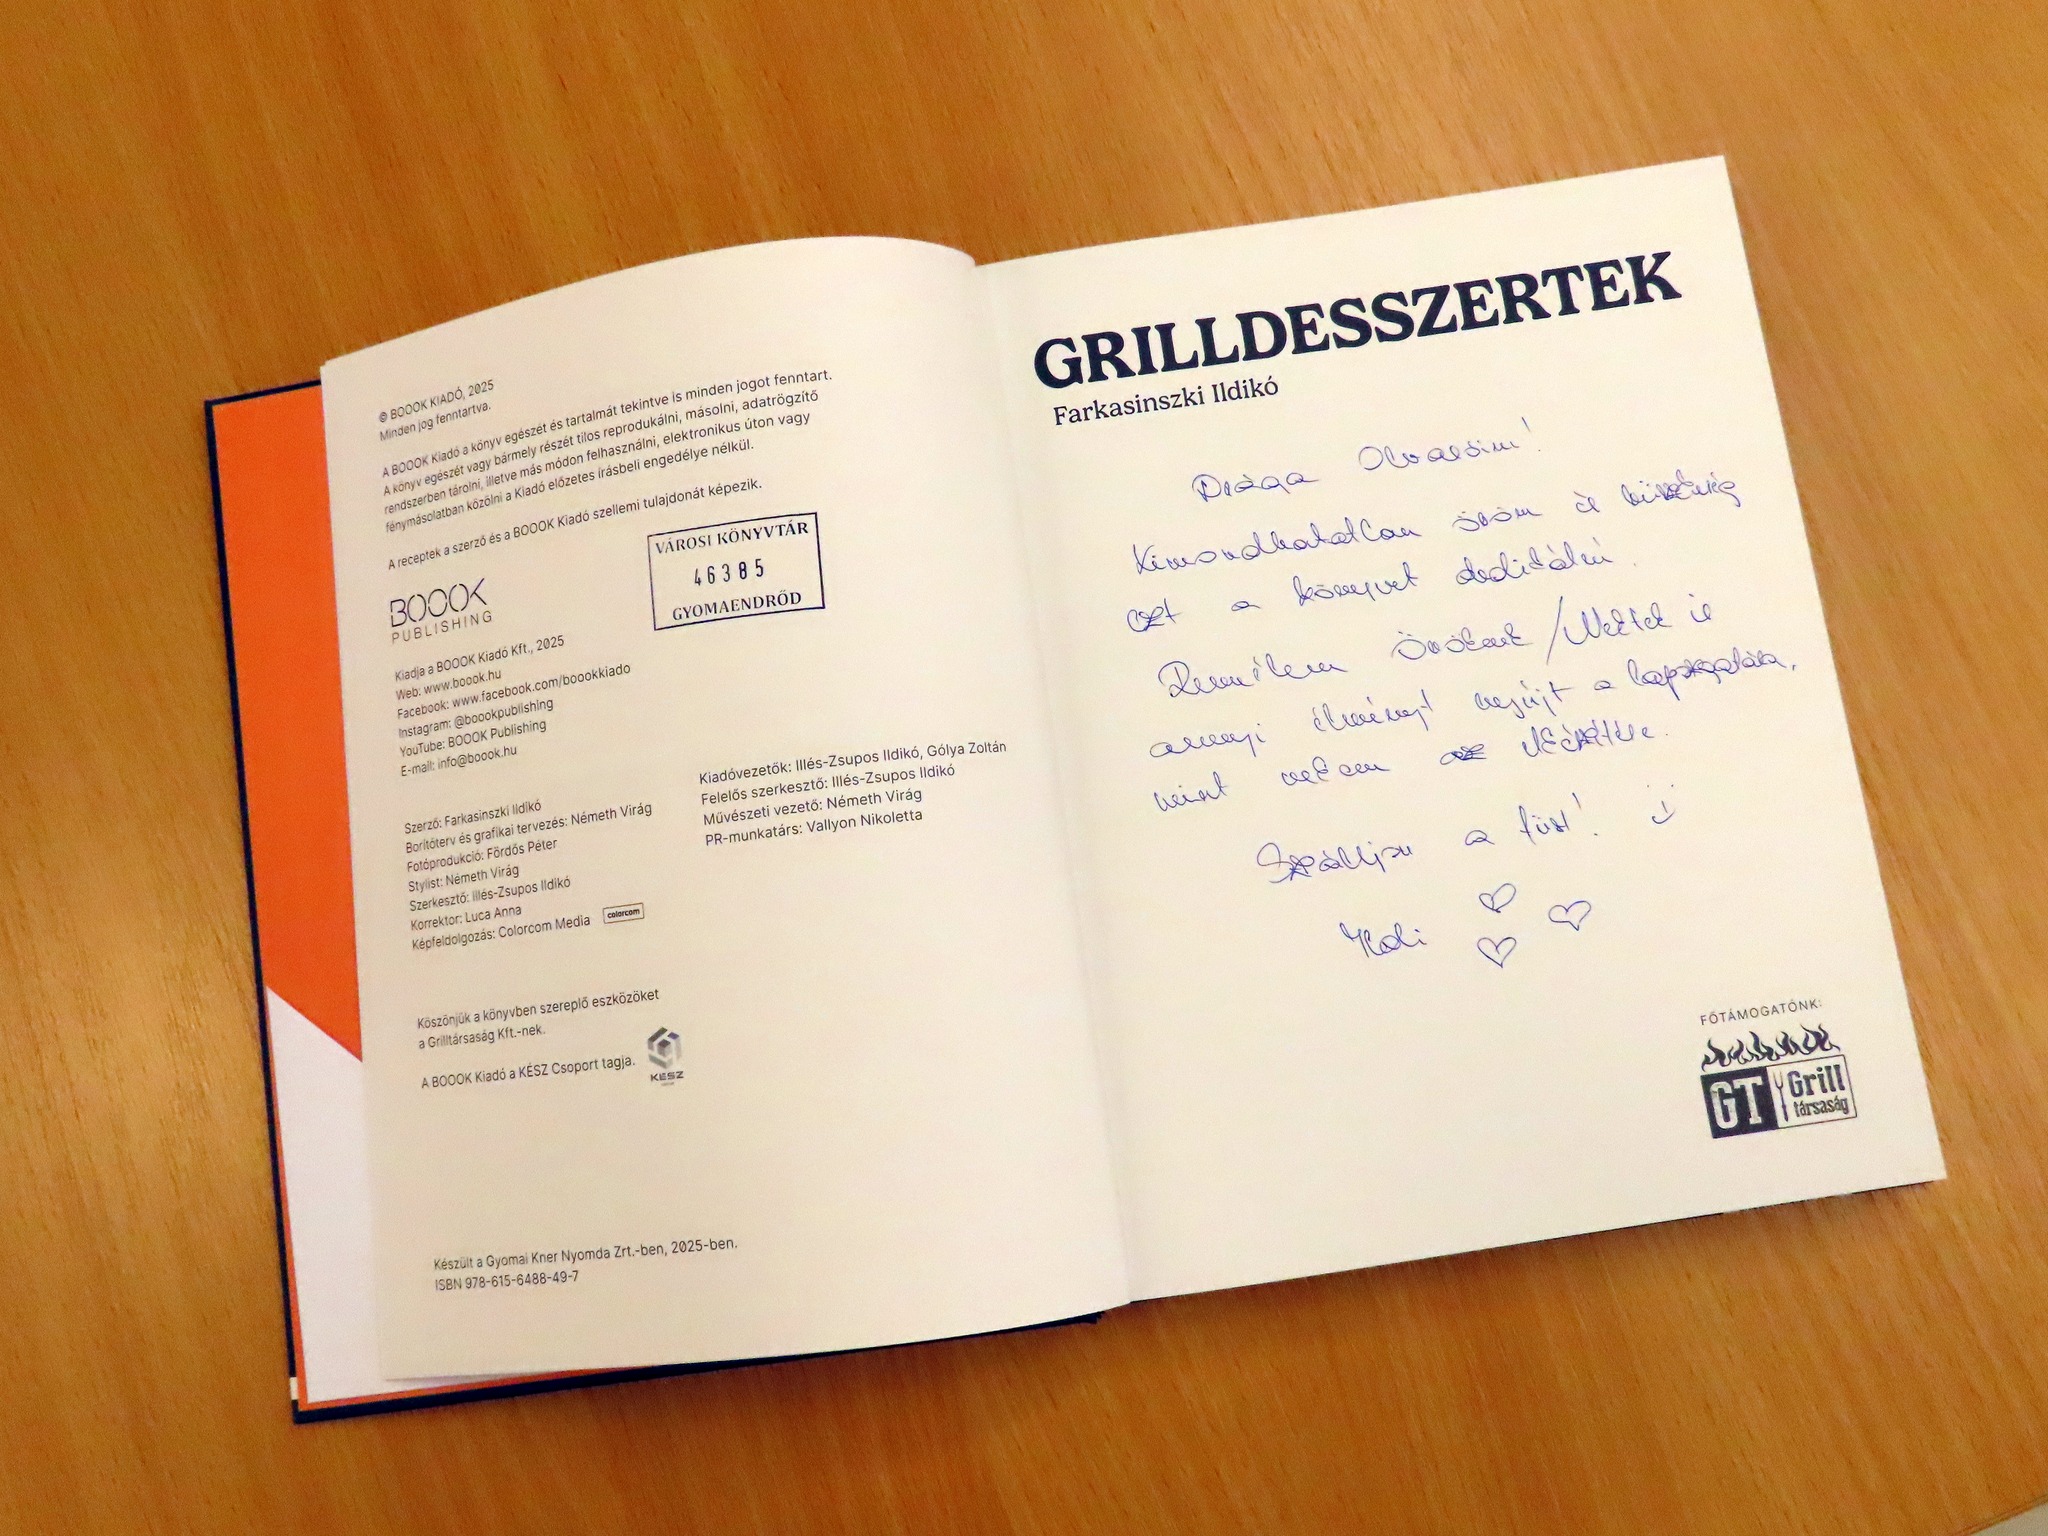 © BOOOK KIADÓ, 2025
Minden jog fenntartva.
A BOOOK Kiadó a könyv egészét és tartalmát tekintve is minden jogot fenntart.
A könyv egészét vagy bármely részét tilos reprodukálni, másolni, adatrögzítő
rendszerben tárolni, illetve más módon felhasználni, elektronikus úton vagy
fénymásolatban közölni a Kiadó előzetes írásbeli engedélye nélkül.
A receptek a szerző és a BOOOK Kiadó szellemi tulajdonát képezik.
VÁROSI KÖNYVTÁR
46385
GYOMAENDRŐD
BOOOK
PUBLISHING
Kiadja a BOOOK Kiadó Kft., 2025
Web: www.boook.hu
Facebook: www.facebook.com/boookkiado
Instagram: @boookpublishing
YouTube: BOOOK Publishing
E-mail: info@boook.hu
Szerző: Farkasinszki Ildikó
Borítóterv és grafikai tervezés: Németh Virág
Fotóprodukció: Fördős Péter
Stylist: Németh Virág
Szerkesztő: Illés-Zsupos Ildikó
Korrektor: Luca Anna
Képfeldolgozás: Colorcom Media
colorcom
Kiadóvezetők: Illés-Zsupos Ildikó, Gólya Zoltán
Felelős szerkesztő: Illés-Zsupos Ildikó
Művészeti vezető: Németh Virág
PR-munkatárs: Vallyon Nikoletta
Köszönjük a könyvben szereplő eszközöket
a Grilltársaság Kft.-nek.
A BOOOK Kiadó a KÉSZ Csoport tagja.
KÉSZ
Készült a Gyomai Kner Nyomda Zrt.-ben, 2025-ben.
ISBN 978-615-6488-49-7
GRILLDESSZERTEK
Farkasinszki Ildikó
Drága Olvasóim!
Kimondhatatlan öröm és büszkeség
ezt a könyvet dedikálni.
Remélem örökké / Nektek is
annyi élményt nyújt a lapozgatása,
mint nekem az
Szálljon a füst! :)
Ildi
FŐTÁMOGATÓNK:
GT Grill
társaság